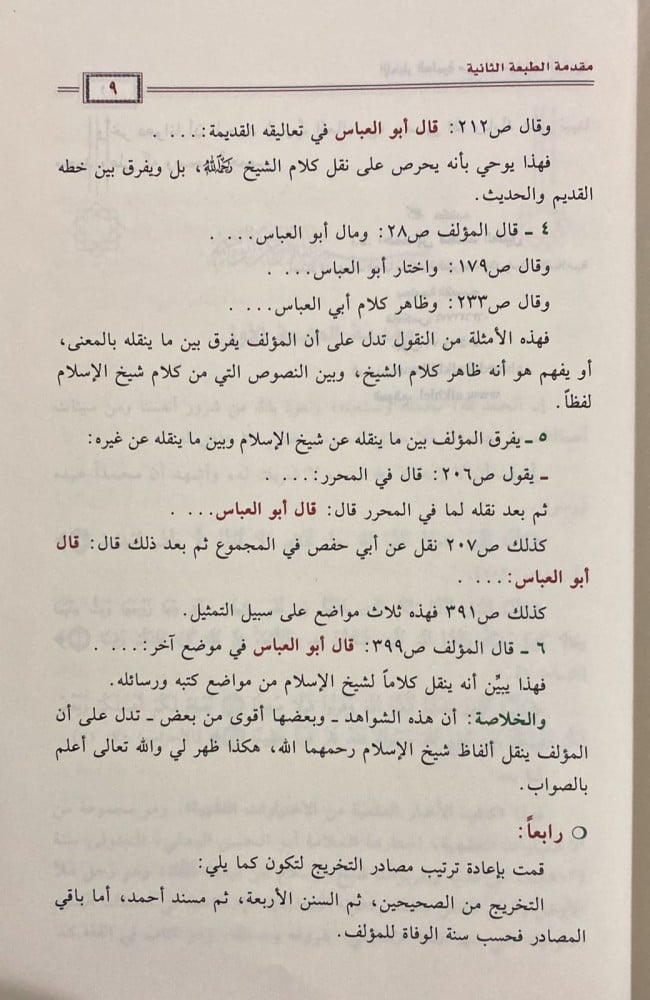 مقدمة الطبعة الثانية
٩
وقال ص٢١٢: قال أبو العباس في تعاليقه القديمة: . . . .
فهذا يوحي بأنه يحرص على نقل كلام الشيخ رحمه الله، بل ويفرق بين خطه
القديم والحديث.
٤ ـ قال المؤلف ص٢٨: ومال أبو العباس. . . .
وقال ص١٧٩: واختار أبو العباس. . . .
وقال ص٢٣٣: وظاهر كلام أبي العباس. . . .
فهذه الأمثلة من النقول تدل على أن المؤلف يفرق بين ما ينقله بالمعنى،
أو يفهم هو أنه ظاهر كلام الشيخ، وبين النصوص التي من كلام شيخ الإسلام
لفظاً.
٥ ـ يفرق المؤلف بين ما ينقله عن شيخ الإسلام وبين ما ينقله عن غيره:
ـ يقول ص٢٠٦: قال في المحرر: . . . .
ثم بعد نقله لما في المحرر قال: قال أبو العباس. . . .
كذلك ص٢٠٧ نقل عن أبي حفص في المجموع ثم بعد ذلك قال: قال
أبو العباس: . . . .
كذلك ص٣٩١ فهذه ثلاث مواضع على سبيل التمثيل.
٦ ـ قال المؤلف ص٣٩٩: قال أبو العباس في موضع آخر: . . . .
فهذا يبيِّن أنه ينقل كلاماً لشيخ الإسلام من مواضع كتبه ورسائله.
والخلاصة: أن هذه الشواهد ـ وبعضها أقوى من بعض ـ تدل على أن
المؤلف ينقل ألفاظ شيخ الإسلام رحمهما الله، هكذا ظهر لي والله تعالى أعلم
بالصواب.
○ رابعاً:
قمت بإعادة ترتيب مصادر التخريج لتكون كما يلي:
التخريج من الصحيحين، ثم السنن الأربعة، ثم مسند أحمد، أما باقي
المصادر فحسب سنة الوفاة للمؤلف.